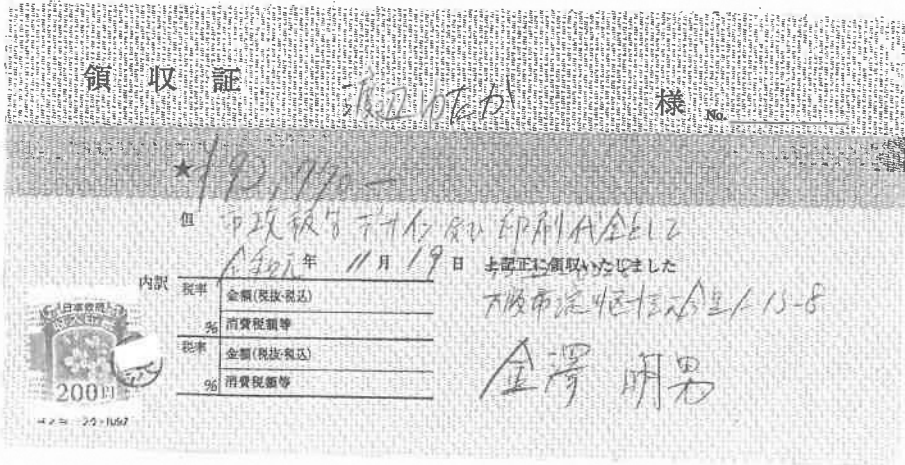 領収証 渡辺ゆたか 様 No.
★ ¥92,990-
但 市政報告デザイン及び印刷代金として
令和元年 11月19日 上記正に領収いたしました
内訳
税率 金額(税抜・税込)
% 消費税額等
税率 金額(税抜・税込)
% 消費税額等
大阪市淀川区 1-13-8
金澤 明男
日本政府
200円